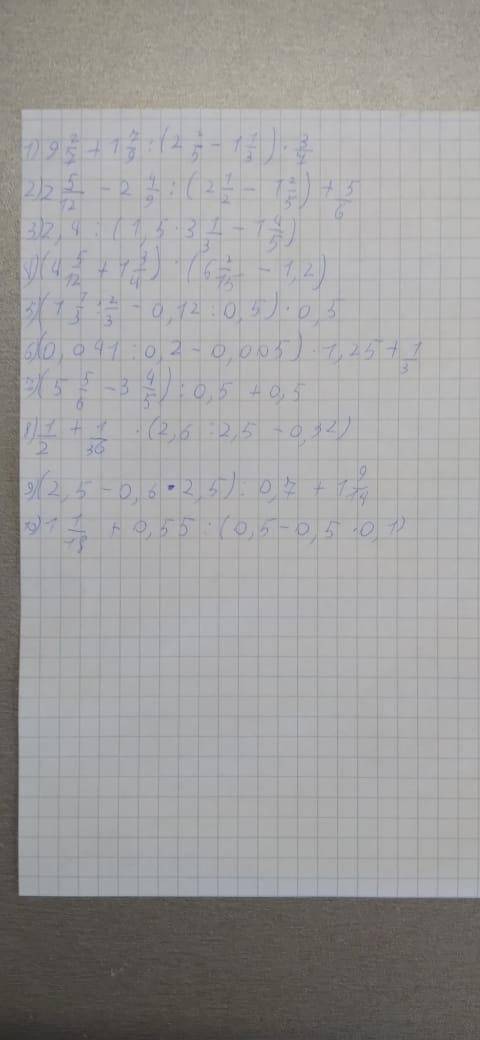 1) 9 2/5 + 1 7/9 : (2 2/5 - 1 1/3) · 3/7
2) 2 5/12 - 2 4/9 : (2 1/2 - 1 2/3) + 5/6
3) 2,4 : (1,5 · 3 1/3 - 1 4/5)
4) (4 5/12 + 1 3/4) · (6 2/15 - 1,2)
5) (1 1/3 : 2/3 - 0,12 : 0,5) · 0,5
6) (0,041 : 0,2 - 0,005) · 1,25 + 1/3
7) (5 5/6 - 3 4/5) : 0,5 + 0,5
8) 1/2 + 1/36 · (2,6 : 2,5 - 0,32)
9) (2,5 - 0,6 · 2,5) : 0,7 + 1 9/14
10) 1 1/18 + 0,55 : (0,5 - 0,5 · 0,1)